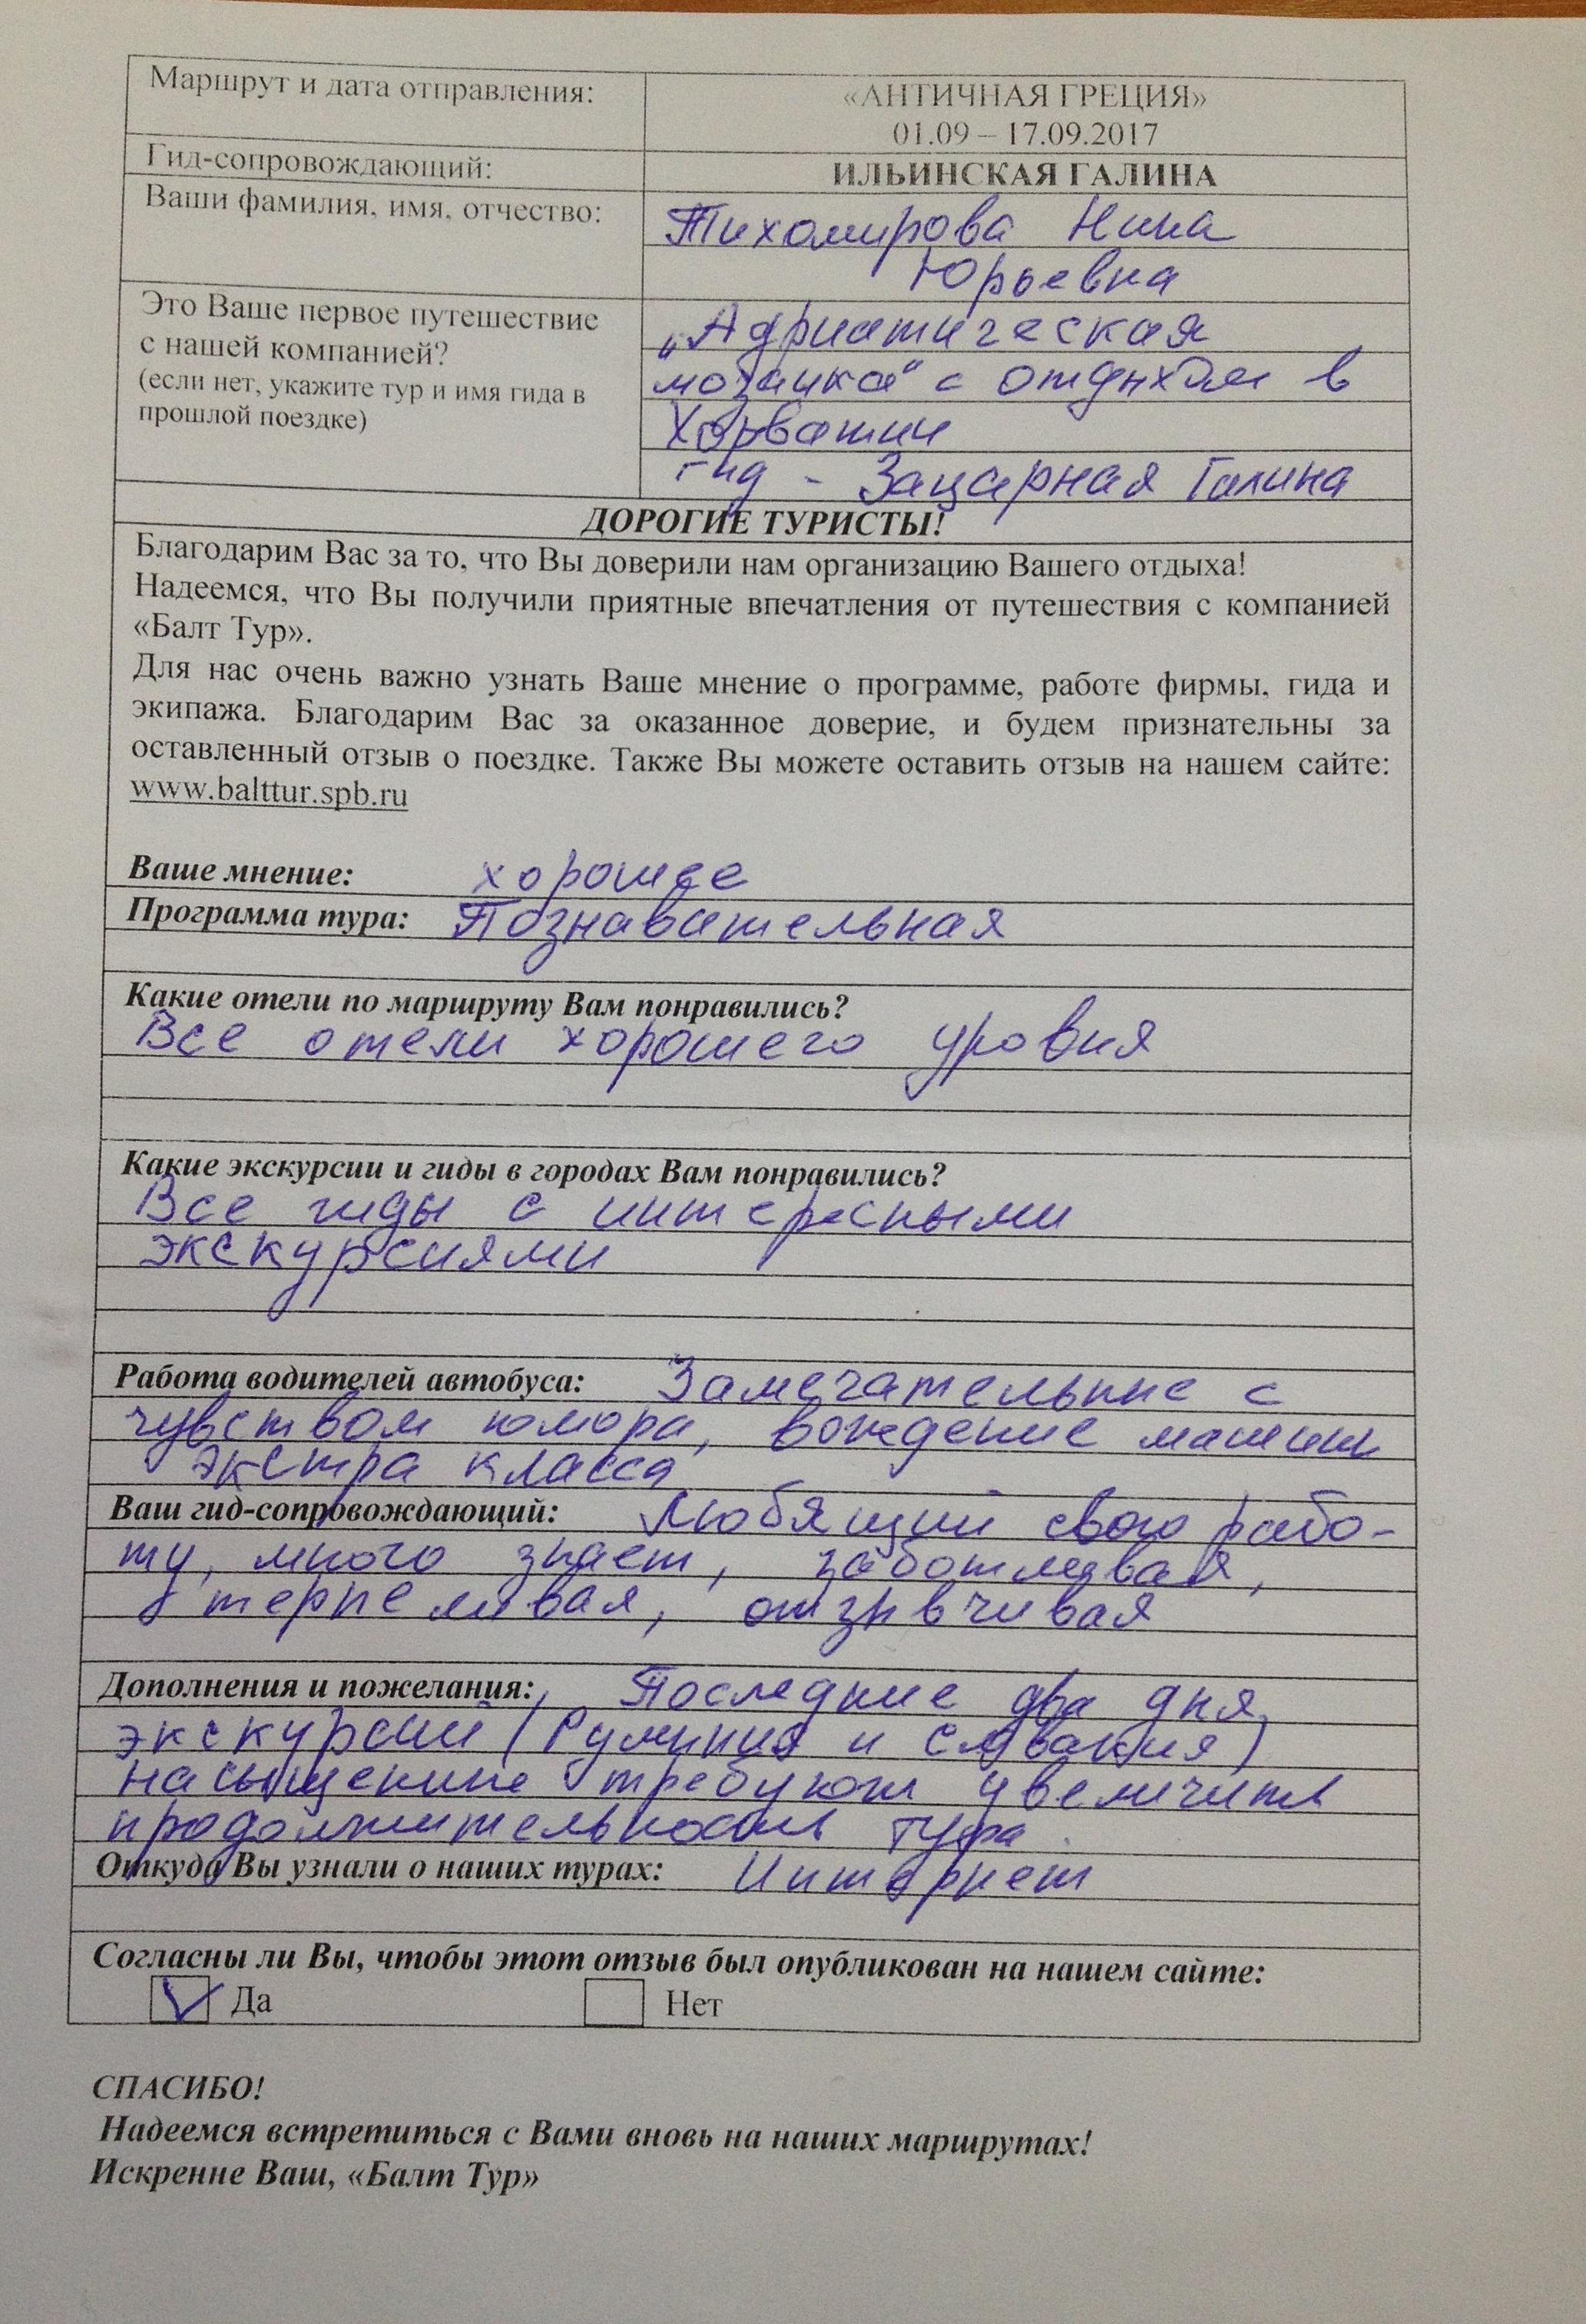 Маршрут и дата отправления:
«АНТИЧНАЯ ГРЕЦИЯ»
01.09 – 17.09.2017
Гид-сопровождающий:
ИЛЬИНСКАЯ ГАЛИНА
Ваши фамилия, имя, отчество:
Тихомирова Нина
Юрьевна
Это Ваше первое путешествие
с нашей компанией?
(если нет, укажите тур и имя гида в
прошлой поездке)
„Адриатическая
мозаика" с отдыхом в
Хорватии
гид - Зацарная Галина
ДОРОГИЕ ТУРИСТЫ!
Благодарим Вас за то, что Вы доверили нам организацию Вашего отдыха!
Надеемся, что Вы получили приятные впечатления от путешествия с компанией
«Балт Тур».
Для нас очень важно узнать Ваше мнение о программе, работе фирмы, гида и
экипажа. Благодарим Вас за оказанное доверие, и будем признательны за
оставленный отзыв о поездке. Также Вы можете оставить отзыв на нашем сайте:
www.balttur.spb.ru
Ваше мнение: хорошее
Программа тура: Познавательная
Какие отели по маршруту Вам понравились?
Все отели хорошего уровня
Какие экскурсии и гиды в городах Вам понравились?
Все гиды с интересными
экскурсиями
Работа водителей автобуса: Замечательные с
чувством юмора, вождение машины
экстра класса
Ваш гид-сопровождающий: Любящий свою рабо-
ту, много знает, заботливая,
терпеливая, отзывчивая
Дополнения и пожелания: Последние два дня
экскурсий (Румыния и Словакия)
насыщенные требуют увеличить
продолжительность тура.
Откуда Вы узнали о наших турах: Интернет
Согласны ли Вы, чтобы этот отзыв был опубликован на нашем сайте:
Да Нет
СПАСИБО!
Надеемся встретиться с Вами вновь на наших маршрутах!
Искренне Ваш, «Балт Тур»